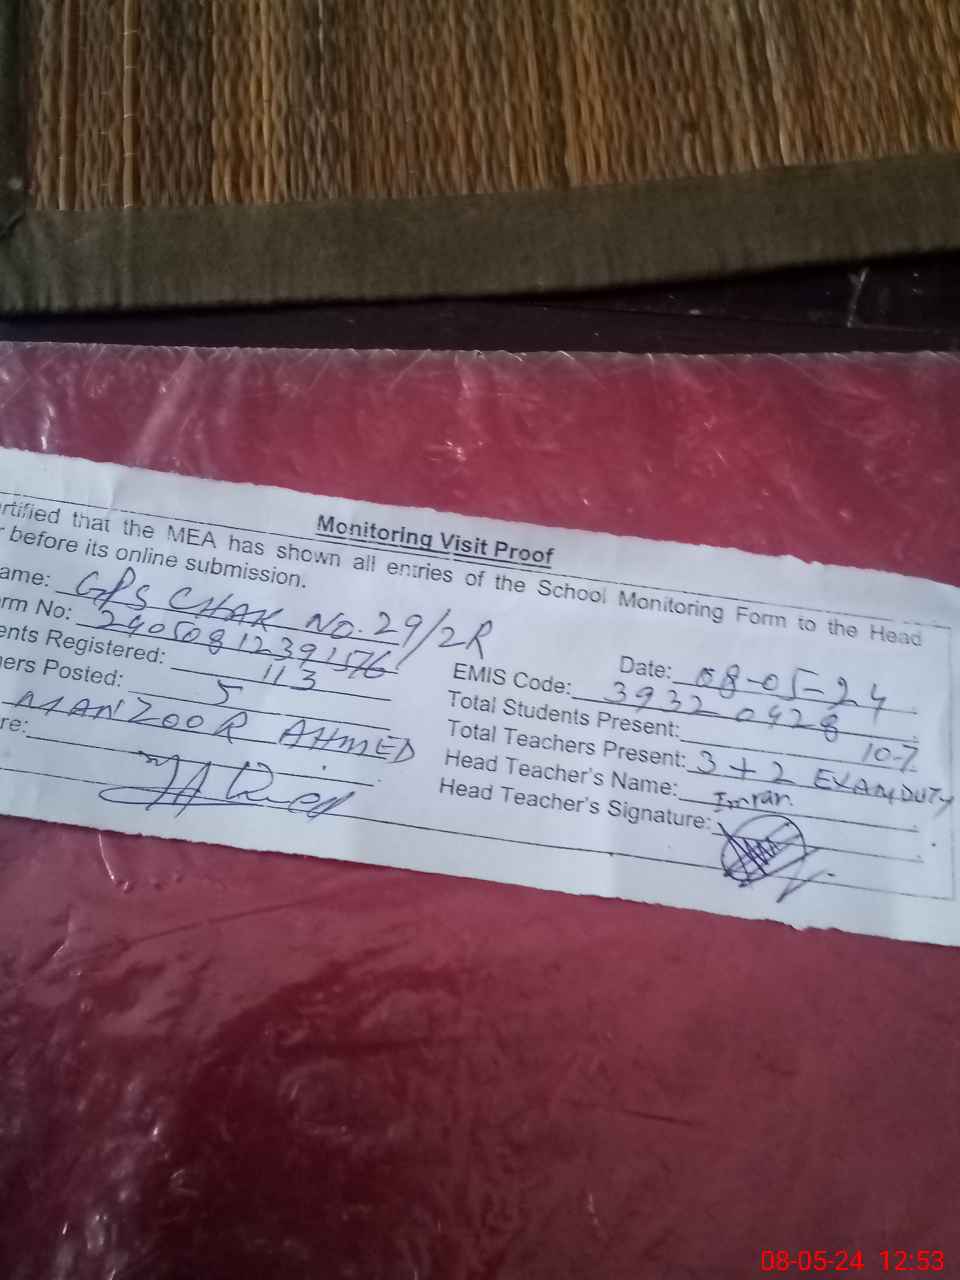 Monitoring Visit Proof
rtified that the MEA has shown all entries of the School Monitoring Form to the Head
r before its online submission.
ame: GPS CHAK NO. 29/2R
Date: 08-05-24
rm No: 24050812391576
EMIS Code: 39320428
ents Registered: 113
Total Students Present: 107
ers Posted: 5
Total Teachers Present: 3 + 2 EXAM DUTY
MANZOOR AHMED
Head Teacher's Name: Imran
re:
Head Teacher's Signature:
08-05-24 12:53